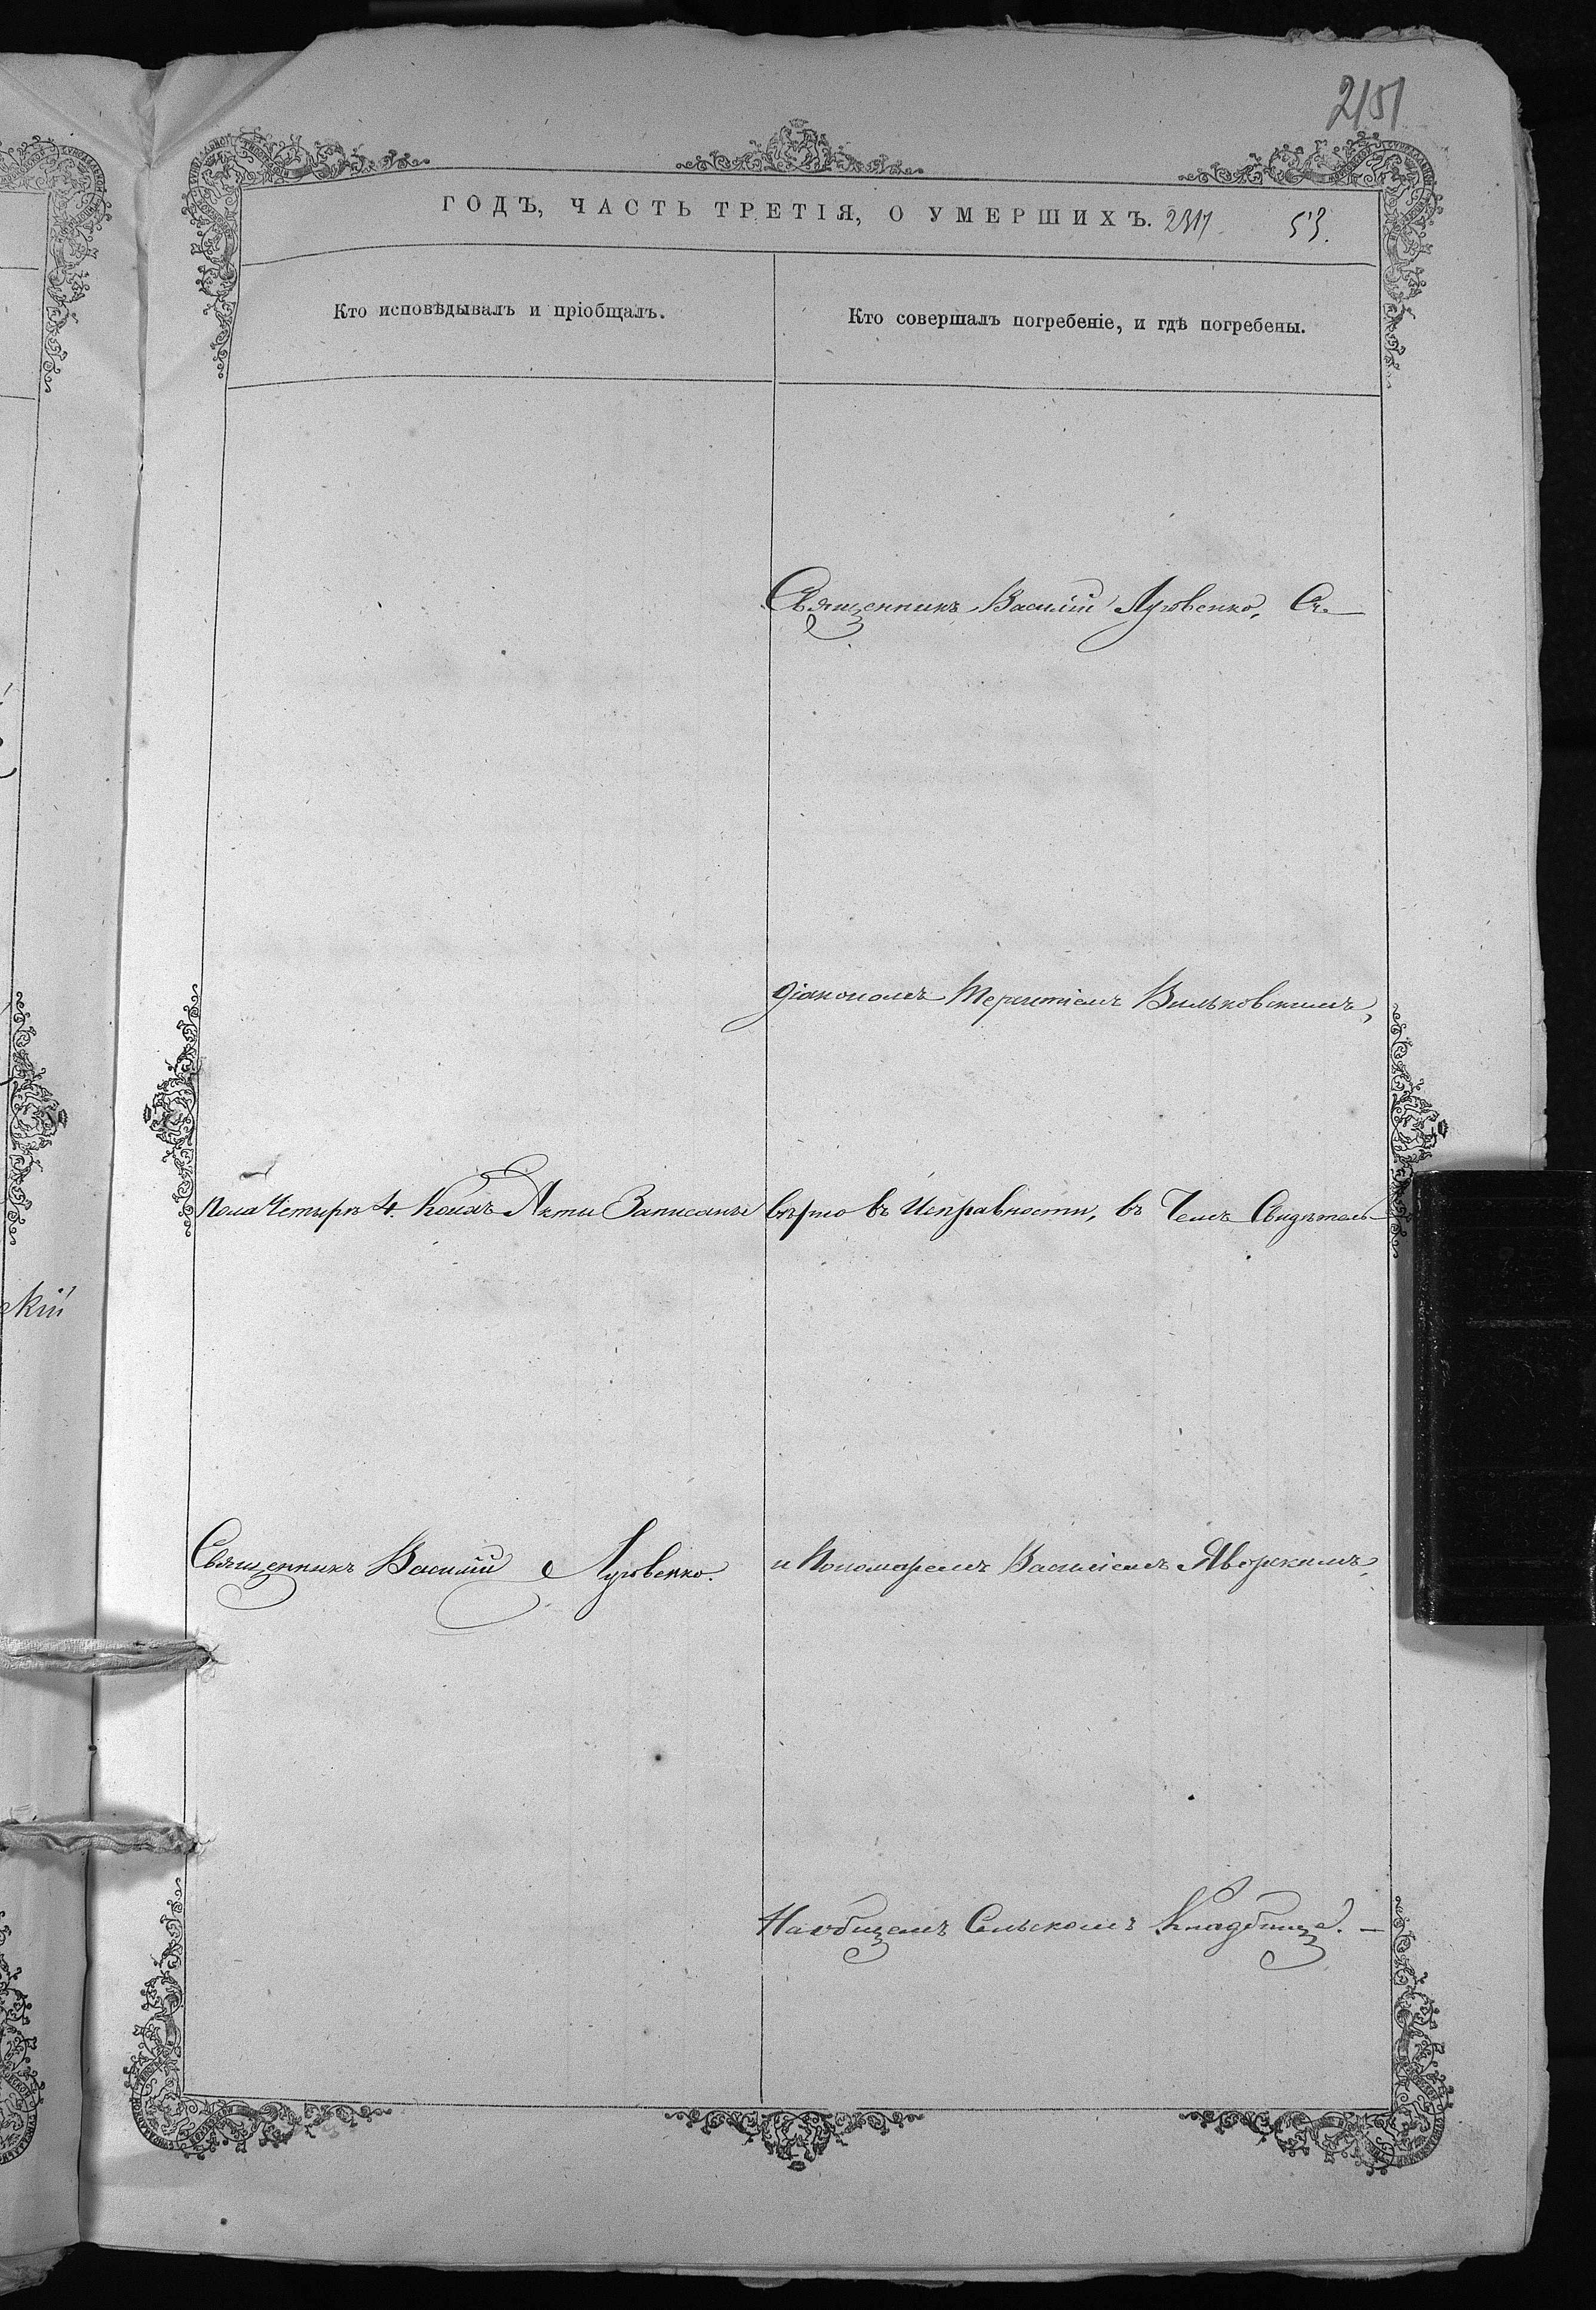 2151
ГОДЪ, ЧАСТЬ ТРЕТІЯ, О УМЕРШИХЪ. 2317. 53.
Кто исповѣдывалъ и пріобщалъ.
Кто совершалъ погребеніе, и гдѣ погребены.
Священникъ Василій Луговенко, Съ
діакономъ Терентіемъ Вильковскимъ,
пола Четыре 4. Коихъ Акты Записаны вѣрно въ Исправности, въ Чемъ Свидѣтель
скій
Священникъ Василій Луговенко.
и Пономаремъ Василіемъ Яворскимъ,
На общемъ Сельскомъ Кладбищѣ. —